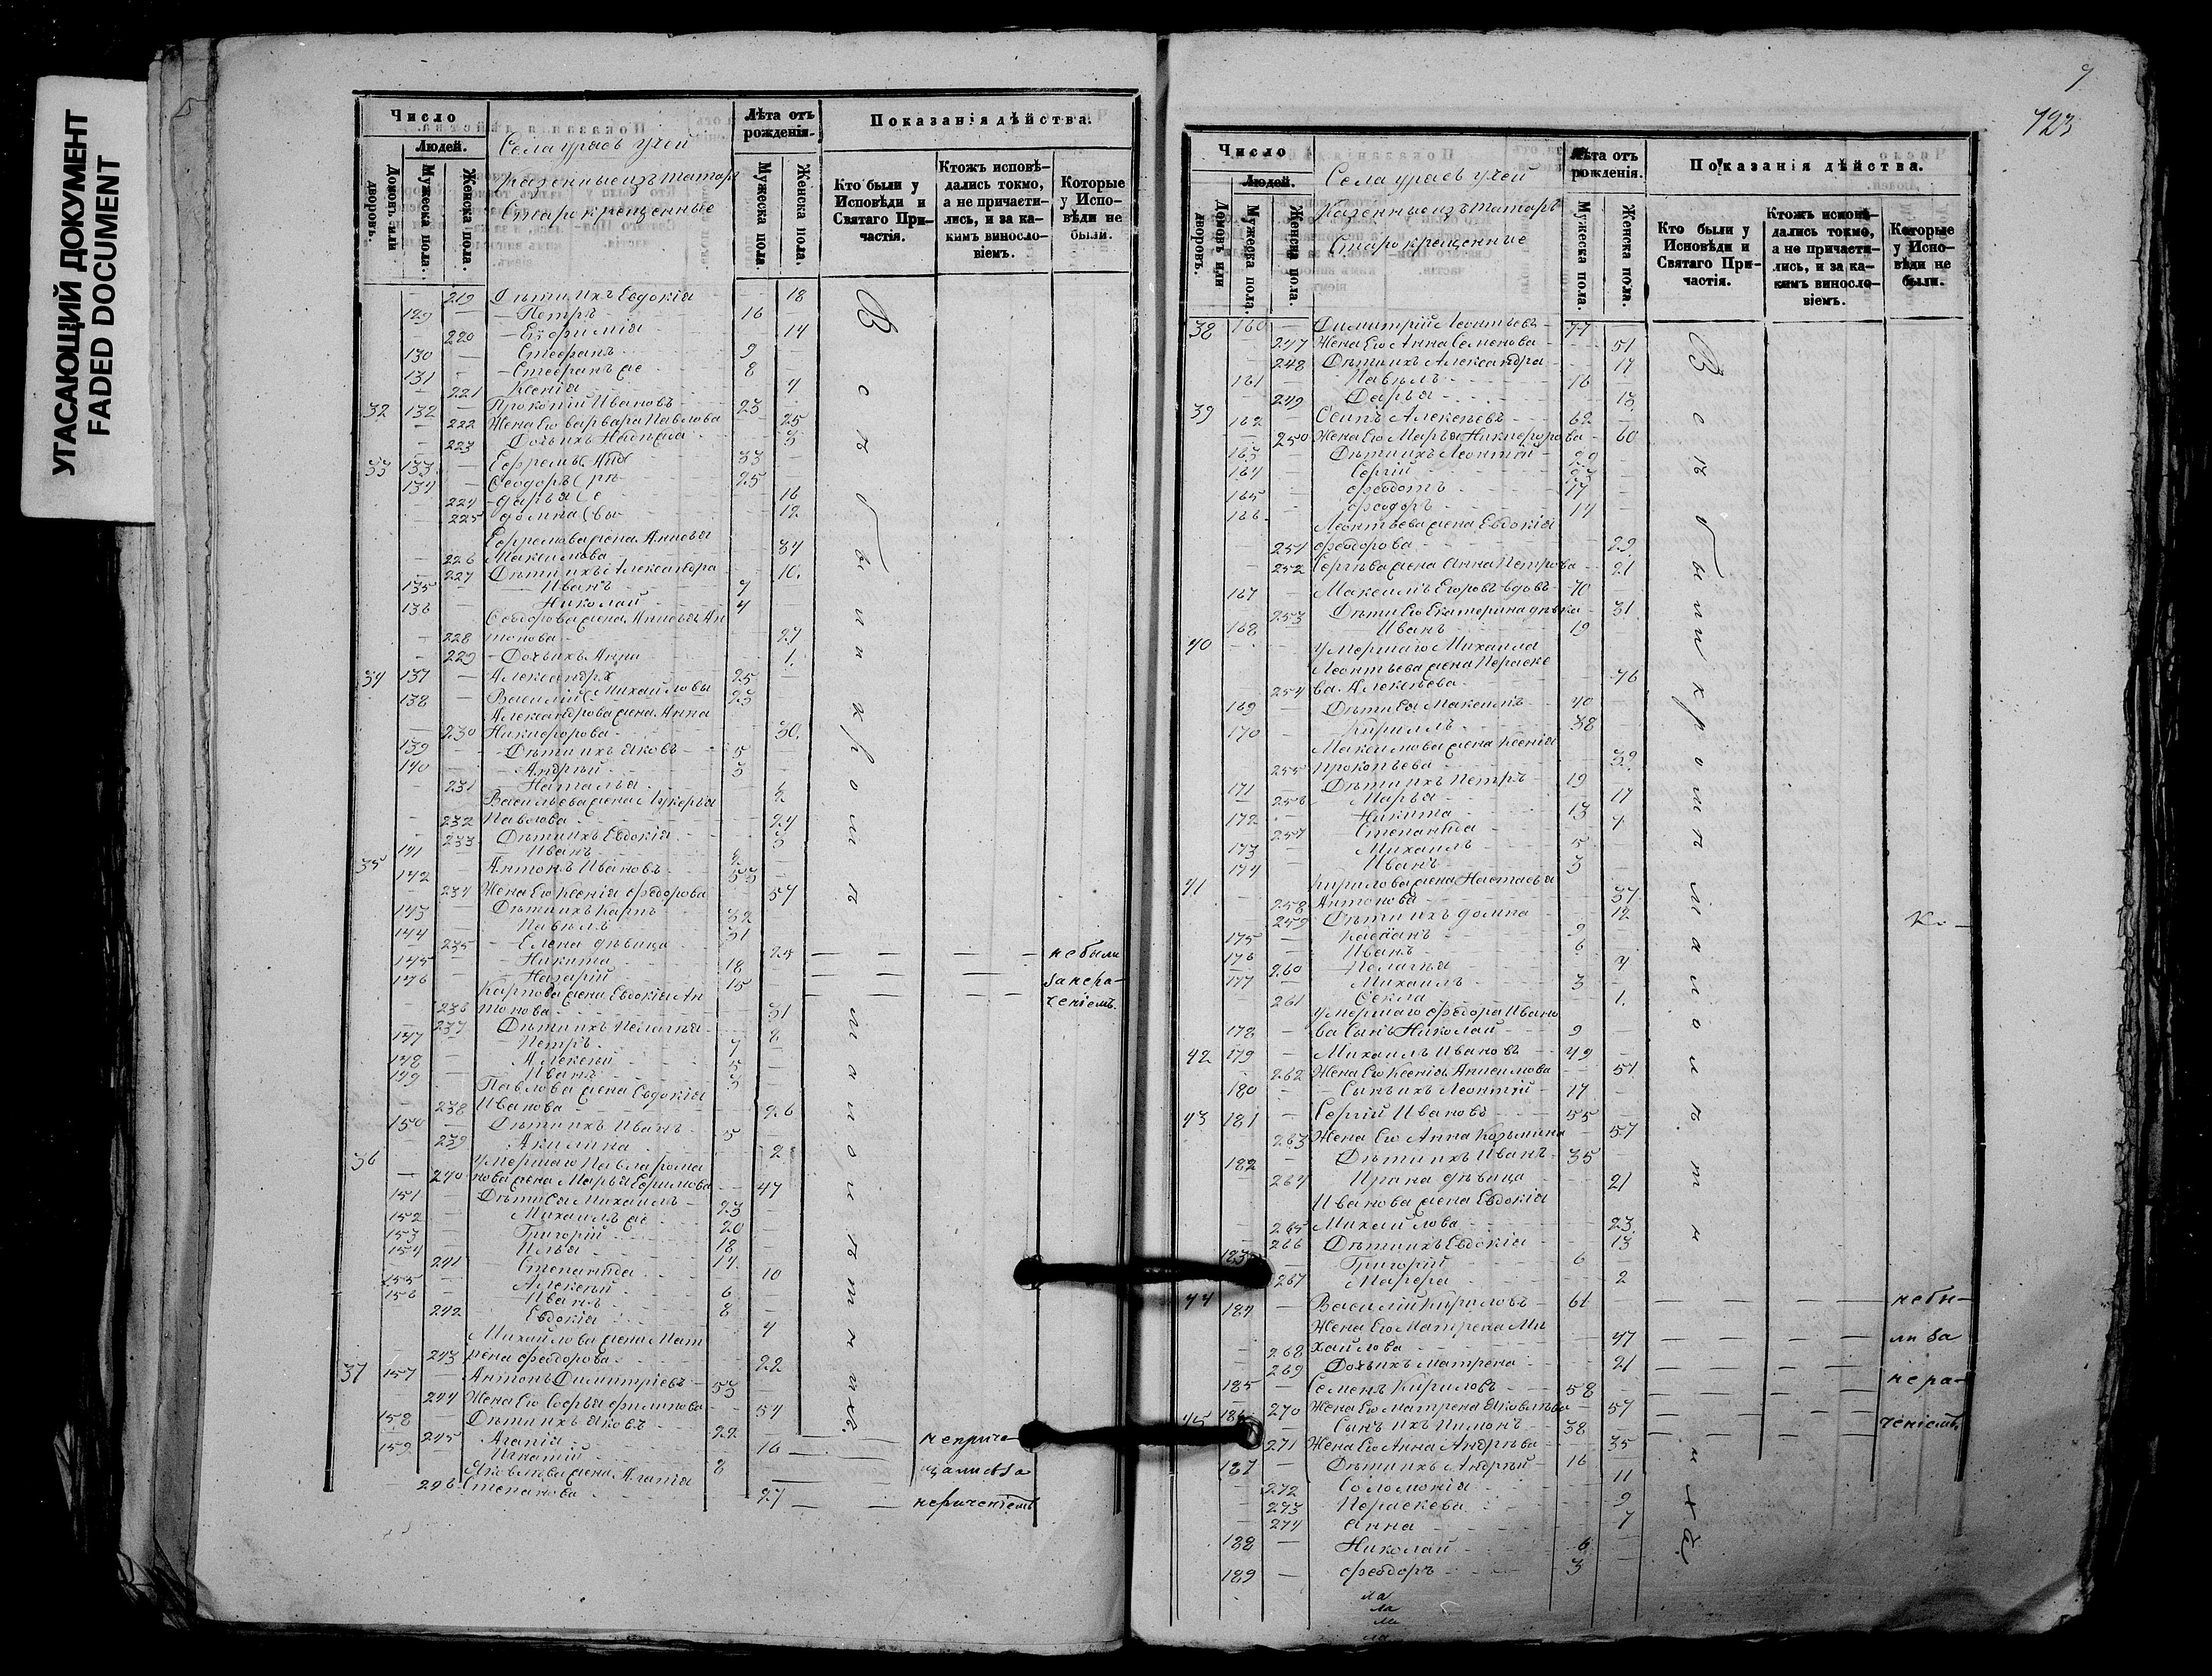 УГАСАЮЩИЙ ДОКУМЕНТ
FADED DOCUMENT
Число
Людей.
Домовъ или дворовъ.
Мужеска пола.
Женска пола.
Села Ураевъ Ухей
Казенные изъ татаръ
Старокрещенные
Лѣта отъ рожденія.
Мужеска пола.
Женска пола.
Показанія дѣйства.
Кто были у Исповѣди и Святаго Причастія.
Ктожъ исповѣдались токмо, а не причастились, и за какимъ винословіемъ.
Которые у Исповѣди не были.
219 Дѣти ихъ Евдокія 18
129 Петръ 16
220 Евфимія 14
130 Стефанъ 9
131 Стефанъ же 8
221 Ксенія 4
32 132 Прокопій Ивановъ 23
222 Жена его Варвара Павлова 25
223 Дочь ихъ 3
33 133 Ефремъ 33
134 Ѳеодоръ 25
224 Дарья 16
225 Домна 12
Ефремова жена Анповья
226 Максимова 34
227 Дѣти ихъ Александра 10.
135 Иванъ 7
136 Николай 4
Ѳеодорова жена Ан
228 тонова 27
229 Дочь ихъ Анна 1.
34 137 Александръ 25
138 Василій Михайловы 23
Александрова жена Анна
230 Никифорова 30.
139 Дѣти ихъ Яковъ 5
140 Андрей 3
231 Наталья ½
Васильева жена Лукерья
232 Павлова 24
233 Дѣти ихъ Евдокія 3
141 Иванъ ½
35 142 Антонъ Ивановъ 53
234 Жена его Ксенія Ѳеодорова 54
143 Дѣти ихъ Карпъ 32
144 Павелъ 31
235 Елена дѣвица 25 не были
145 Никита 18
146 Назарій 15 за нера-
Карпова жена Евдокія Ан ченіемъ.
236 тонова 31
237 Дѣти ихъ Пелагія 8
147 Петръ 7
148 Алексѣй 5
149 Иванъ 3
Павлова жена Евдокія
238 Иванова 26
150 Дѣти ихъ Иванъ 5
239 Акилина 2
36 Умершаго Павла Рома
240 нова жена Марья Ефимова 47
151 Дѣти ея Михаилъ 23
152 Михаилъ же 20
153 Григорій 18
154 Илья 14.
241 Степанида 10
155 Алексѣй 6
156 Иванъ 8
242 Евдокія 4
Михайлова жена Мат
243 рена Ѳеодорова 22
37 157 Антонъ Димитріевъ 53
244 Жена его Софья Филипова 54
158 Дѣти ихъ Яковъ 22
245 Агапія 16 неприча-
159 Игнатій 8
Яковлева жена Агапія щались за
246 Степанова 27 нераченіемъ
Всѣ были кромѣ малолѣтнихъ.
9
123
Число
Людей.
Домовъ или дворовъ.
Мужеска пола.
Женска пола.
Села Ураевъ Ухей
Казенные изъ татаръ
Старокрещенные
Лѣта отъ рожденія.
Мужеска пола.
Женска пола.
Показанія дѣйства.
Кто были у Исповѣди и Святаго Причастія.
Ктожъ исповѣдались токмо, а не причастились, и за какимъ винословіемъ.
Которые у Исповѣди не были.
38 160 Димитрій Леонтьевъ 47
247 Жена его Анна Семенова 51
248 Дѣти ихъ Александра 17
161 Павелъ 16
249 Дарья 13.
39 162 Осипъ Алексѣевъ 62
250 Жена его Марья Никифорова 60
163 Дѣти ихъ Леонтій 29
164 Сергій 23
165 Ѳеодотъ 17
166 Ѳеодоръ 14
Леонтьева жена Евдокія
251 Ѳеодорова 29
252 Сергѣева жена Анна Петрова 21
167 Максимъ Егоровъ вдовъ 70
253 Дѣти его Екатерина дѣвка 31
168 Иванъ 19
40 Умершаго Михаила
Леонтьева жена Параске
254 ва Алексѣева 76
169 Дѣти ея Максимъ 40
170 Кириллъ 38
Максимова жена Ксенія
255 Прокопьева 39
171 Дѣти ихъ Петръ 19
256 Марья 17
172 Никита 13
257 Степанида 7
173 Михаилъ 5
174 Иванъ 3
41 Кирилова жена Настасья
258 Антонова 37
259 Дѣти ихъ Домна 12
175 Касіанъ 9
176 Иванъ 6
260 Пелагія 4
177 Михаилъ 3
261 Ѳекла 1.
Умершаго Ѳеодора Ивано
178 ва сынъ Николай 9
42 179 Михаилъ Ивановъ 49
262 Жена его Ксенія Анисимова 51
180 Сынъ ихъ Леонтій 17
43 181 Сергій Ивановъ 55
263 Жена его Анна Козьмина 57
182 Дѣти ихъ Иванъ 35
264 Ирина дѣвица 21
Иванова жена Евдокія
265 Михайлова 23.
266 Дѣти ихъ Евдокія 13
183 Григорій 6
267 Марѳа 2
44 184 Василій Кириловъ 61 не бы-
Жена его Матрена Ми
268 хайлова 47 ли за
269 Дочь ихъ Матрена 21
185 Семенъ Кириловъ 58 нера-
270 Жена его Матрена Яковлева 57
45 186 Сынъ ихъ Пименъ 38 ченіемъ.
271 Жена его Анна Андрѣева 35
187 Дѣти ихъ Андрей 16
272 Соломонія 11
273 Параскева 9
274 Анна 7
188 Николай 6
189 Ѳеодоръ 3
Всѣ были кромѣ малолѣтнихъ.